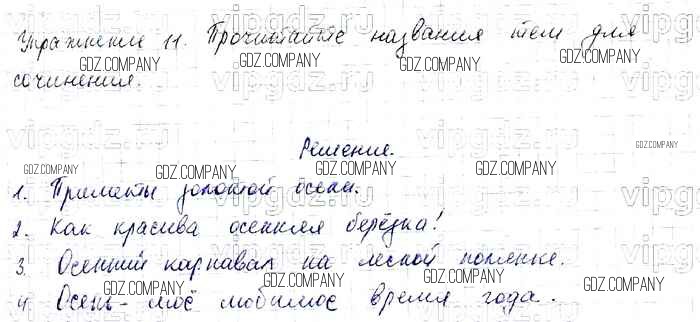 Упражнение 11. Прочитайте названия тем для
сочинения.
Решение.
1. Приметы золотой осени.
2. Как красива осенняя берёзка!
3. Осенний карнавал на лесной полянке.
4. Осень - моё любимое время года.
GDZ.COMPANY
vipgdz.ru